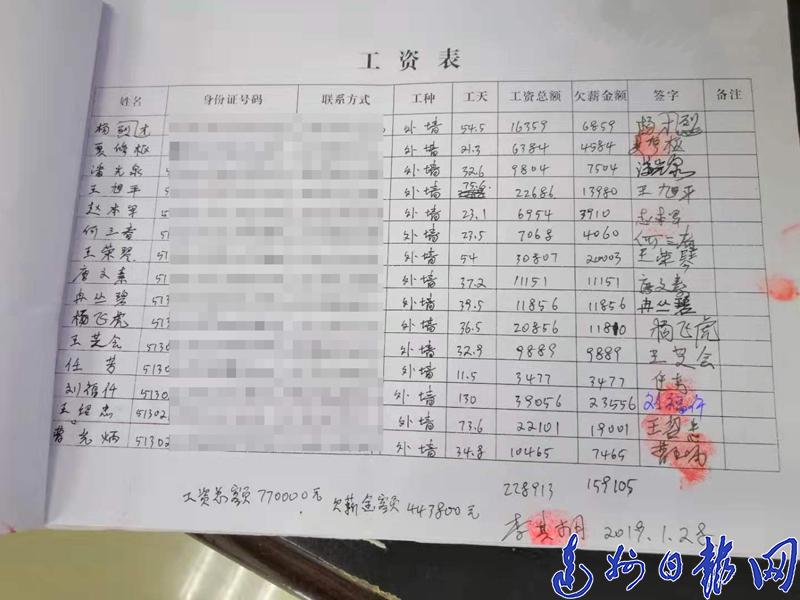 工资表
姓名 身份证号码 联系方式 工种 工天 工资总额 欠薪金额 签字 备注
杨烈才 外墙 54.5 16359 6859
夏修极 外墙 21.3 6384 4584
潘光泉 外墙 32.6 9804 7504
王旭平 外墙 75.6 22686 13980 王旭平
赵本军 外墙 23.1 6954 3910 赵本军
何三香 外墙 23.5 7068 4060
王荣琴 51 外墙 54 30807 20003 王荣琴
唐文素 51 外墙 37.2 11151 11151 唐文素
冉丛碧 51 外墙 39.5 11856 11856 冉丛碧
杨飞虎 513 外墙 36.5 20856 11810 杨飞虎
王芝会 513 外墙 32.9 9889 9889 王芝会
任芳 5130 外墙 11.5 3477 3477 任芳
刘福仟 5130 外墙 130 39056 23556 刘福仟
王绍忠 51302 外墙 73.6 22101 19001
曹光炳 51302 外墙 34.8 10465 7465
228913 159105
工资总额770000元 欠薪金额443800元
2019.1.28
达州日报网